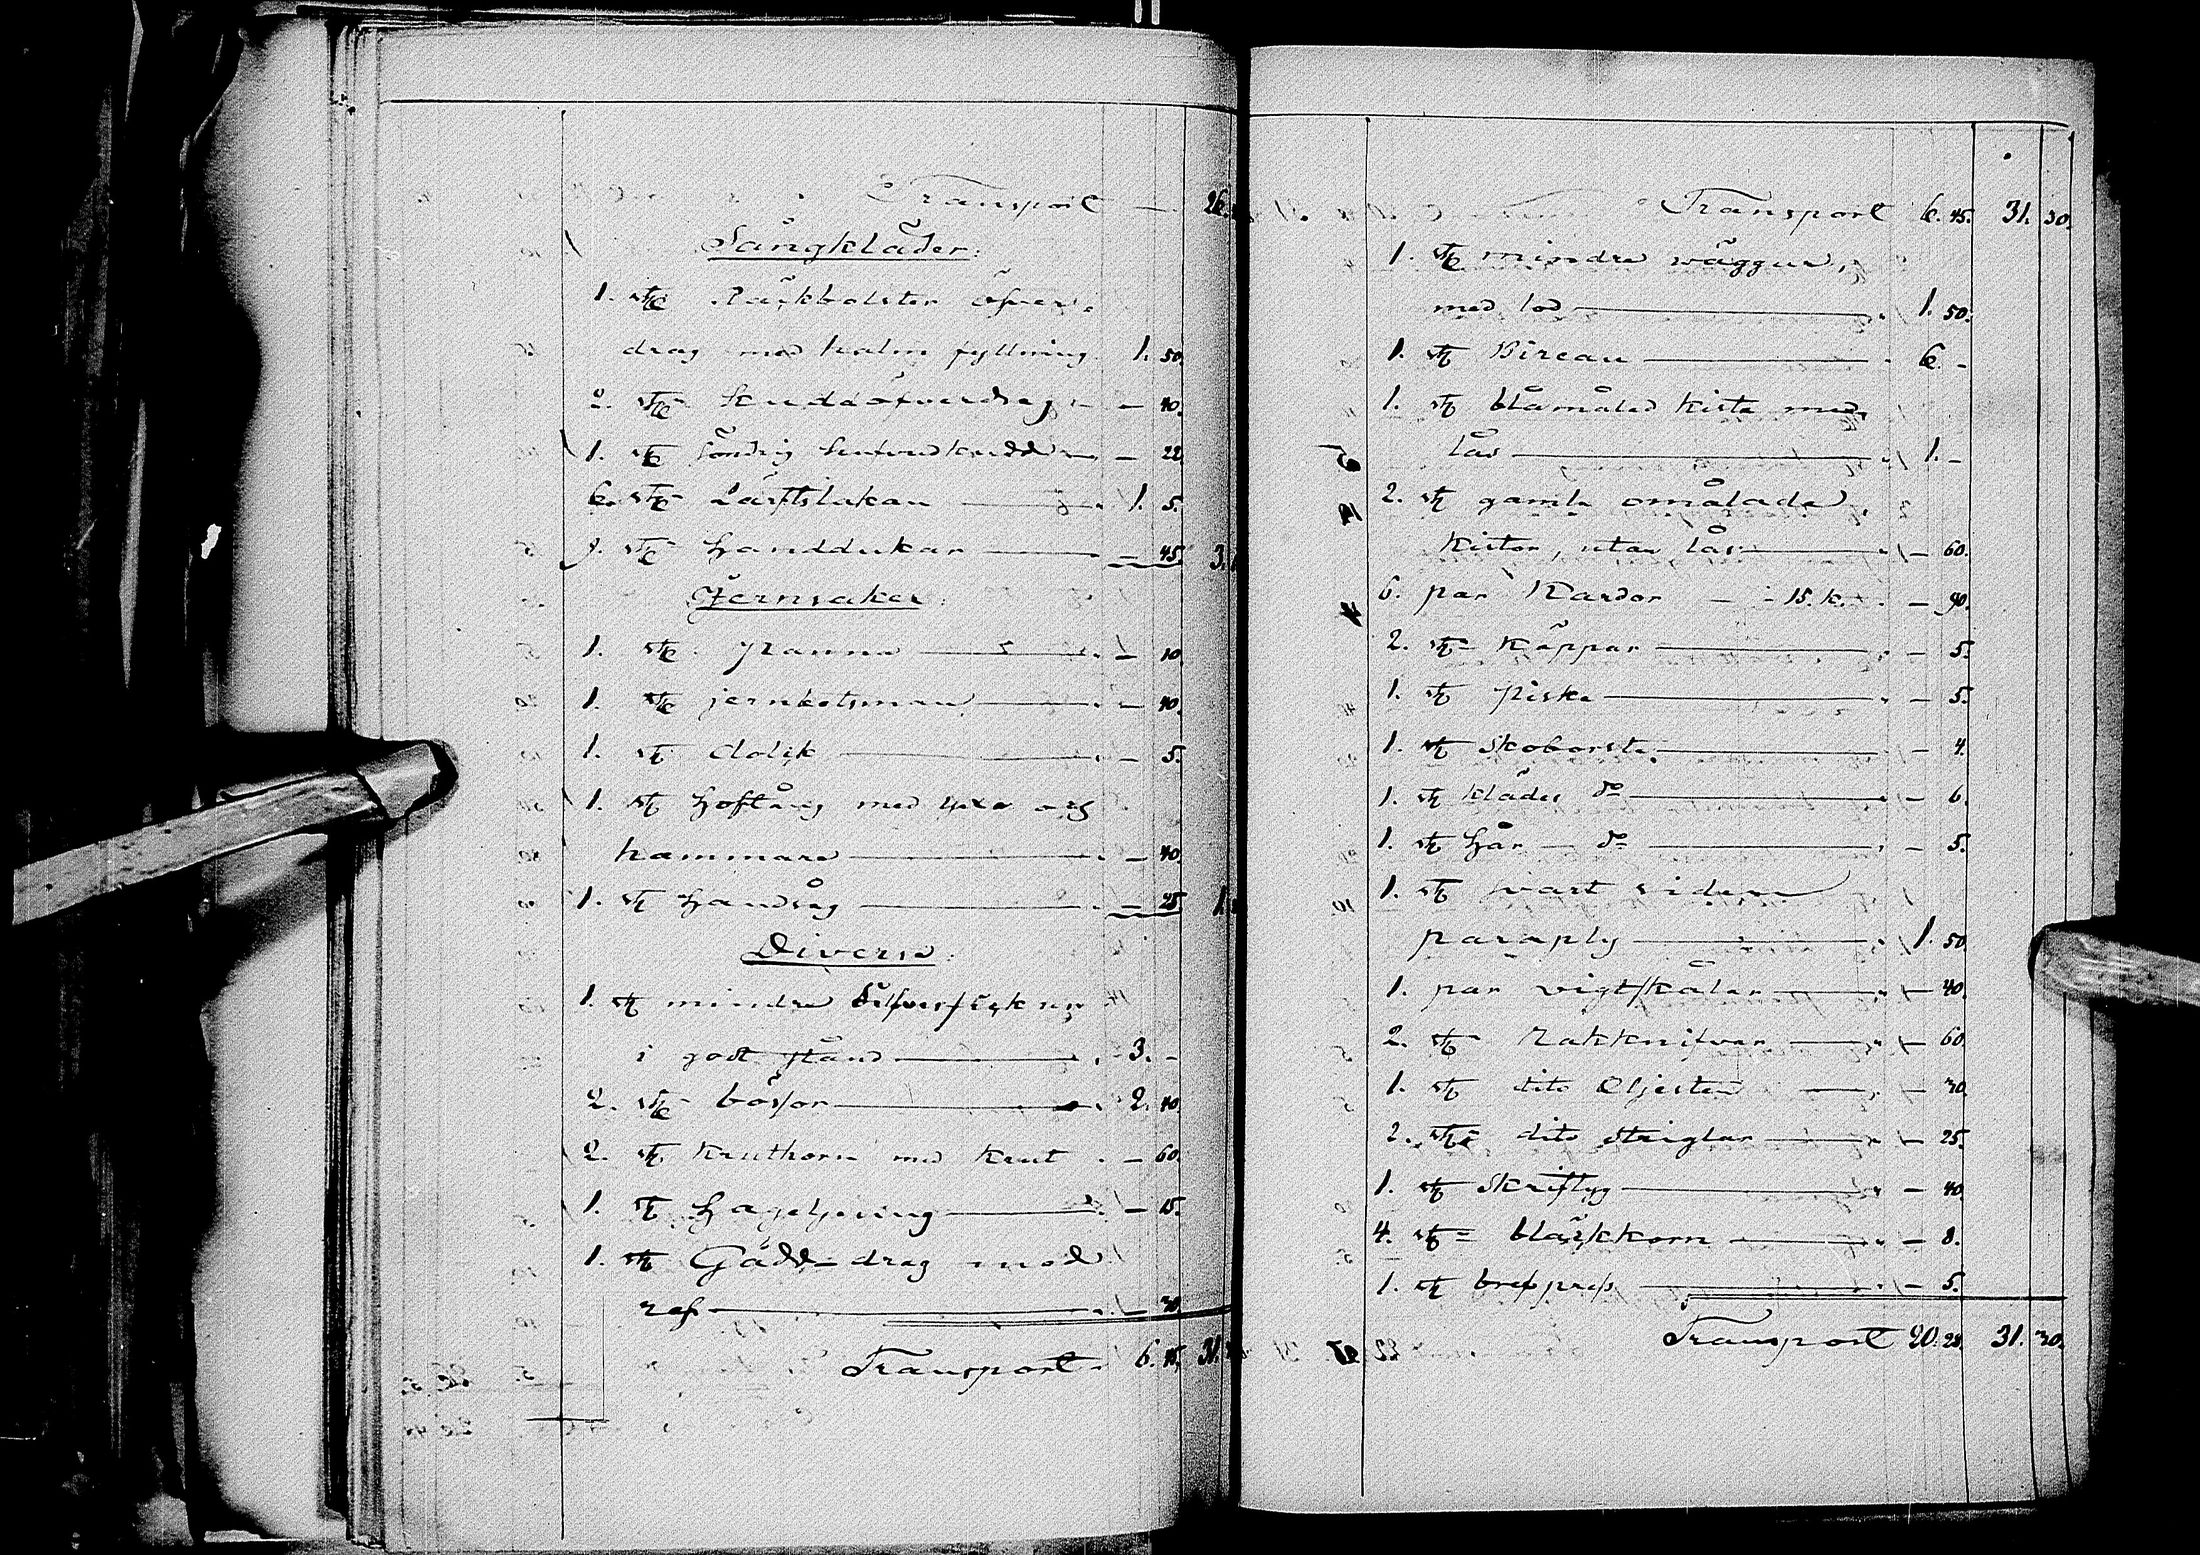 Transport — 26.
Sängkläder:
1. st. Räckbolster öfver-
drag med halm fyllning 1. 50.
2. st. Kuddöfverdrag — 40.
1. st. söndrig hufvudkudde — 22.
6. st. Lärftslakan — 1. 5.
st. Handdukar — 45. 3.
Jernsaker
1. st. panna — 10.
1. st. jernkotsman — 40.
1. st. dolck — 5.
1. st. Hoftång med yxa och
hammare — 40.
1. st. Handsåg — 25. 1.
Diverse.
1. st. mindre Silfverfickur
i godt stånd — 3. -
2. st. bössor — 2. 40.
2. st. Kruthorn med Krut — 60.
1. st. Hageljning — 15.
1. st. Gädd-drag med
ref — 30.
Transport. 6. 45. 31.
Transport 6. 45. 31. 30.
1. st. mindre väggur,
med lod — 1. 50.
1. st. Bireau — 6. -
1. st. blåmålad kista med
lås — 1. -
2. st. gamla omålade
Kistor, utan lås — 60.
6. par Kardor — 15. k. — 90.
2. st. Käppar — 5.
1. st. piska — 5.
1. st. Skoborste — 4.
1. st. kläder do — 6.
1. st. Hår — do — 5.
1. st. svart siden
paraply — 1. 50.
1. par vigtskålar — 40.
2. st. Rakknifvar — 60.
1. st. dito Oljesten — 30.
2. st. dito Striglar — 25.
1. st. Skriftyg — 40.
4. st. bläckhorn — 8.
1. st. brefpress — 5.
Transport 20. 28. 31. 30.